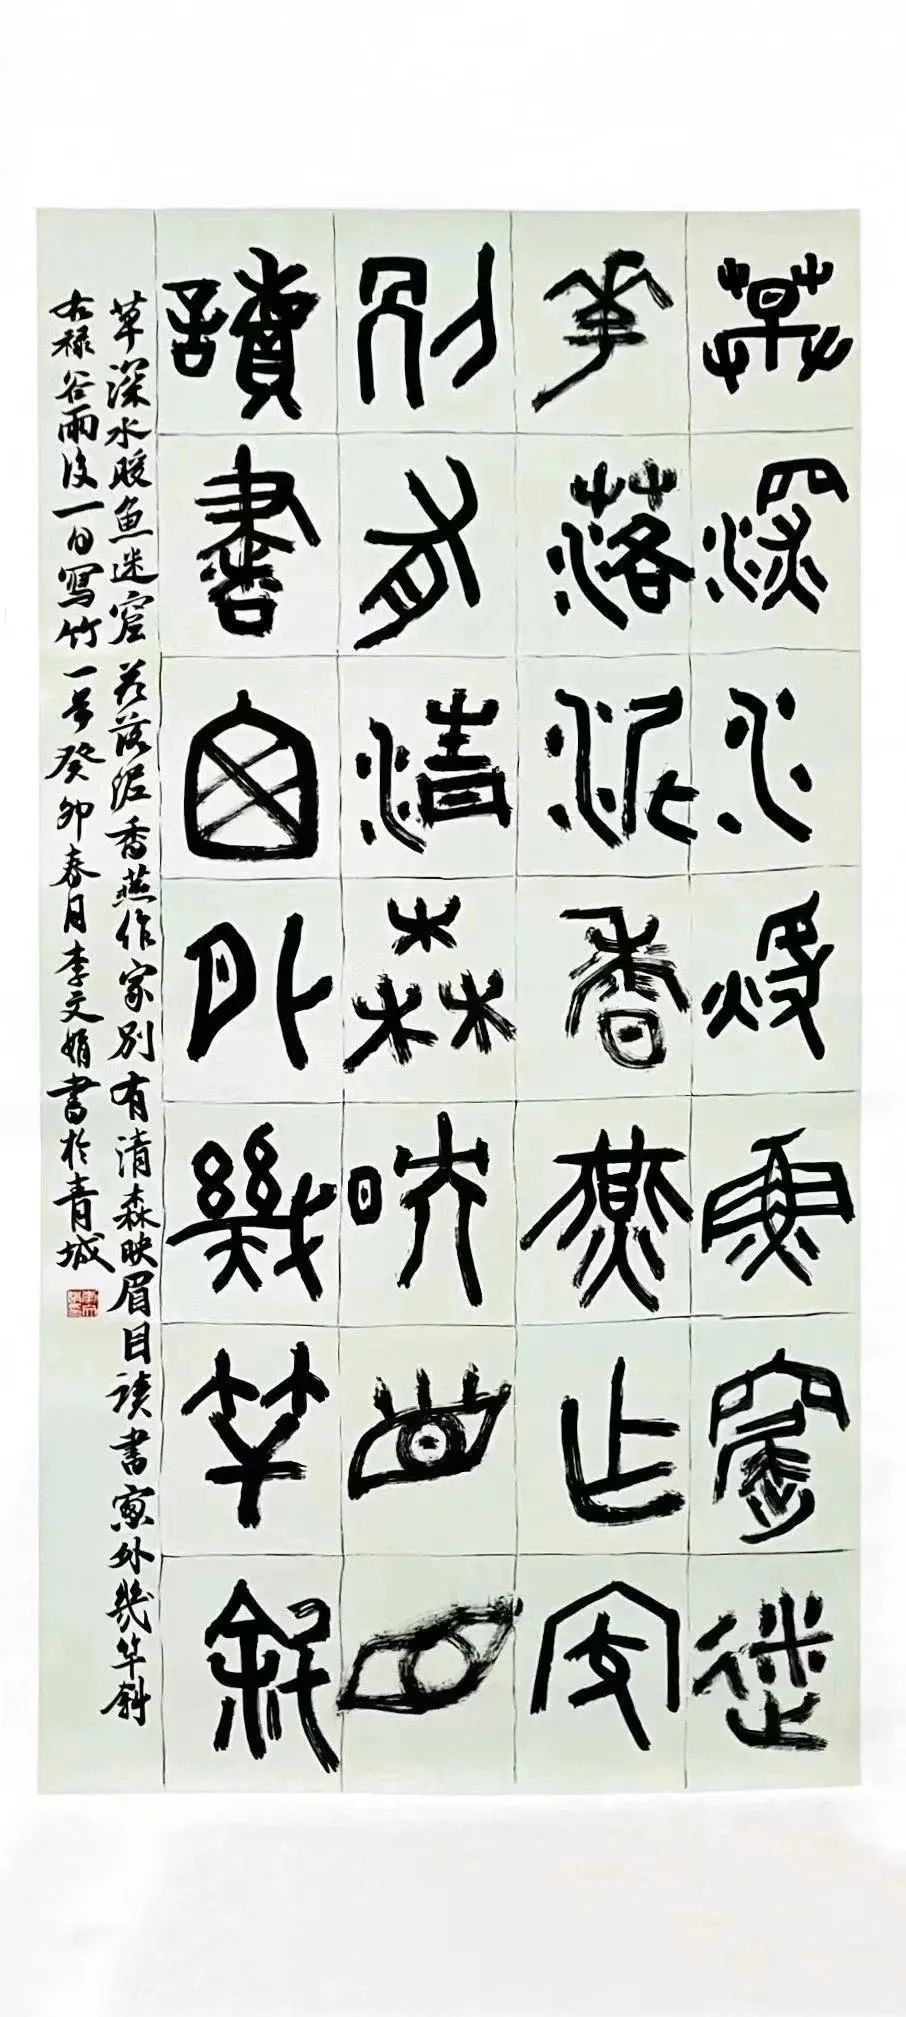 草深水暖魚窟迷
華落泥香燕作家
別有清森映眉目
讀書囪外幾竿斜
草深水暖魚迷窟花落泥香燕作家別有清森映眉目讀書窗外幾竿斜
右禄谷雨後一日寫竹一首癸卯春月李文娟書於青城